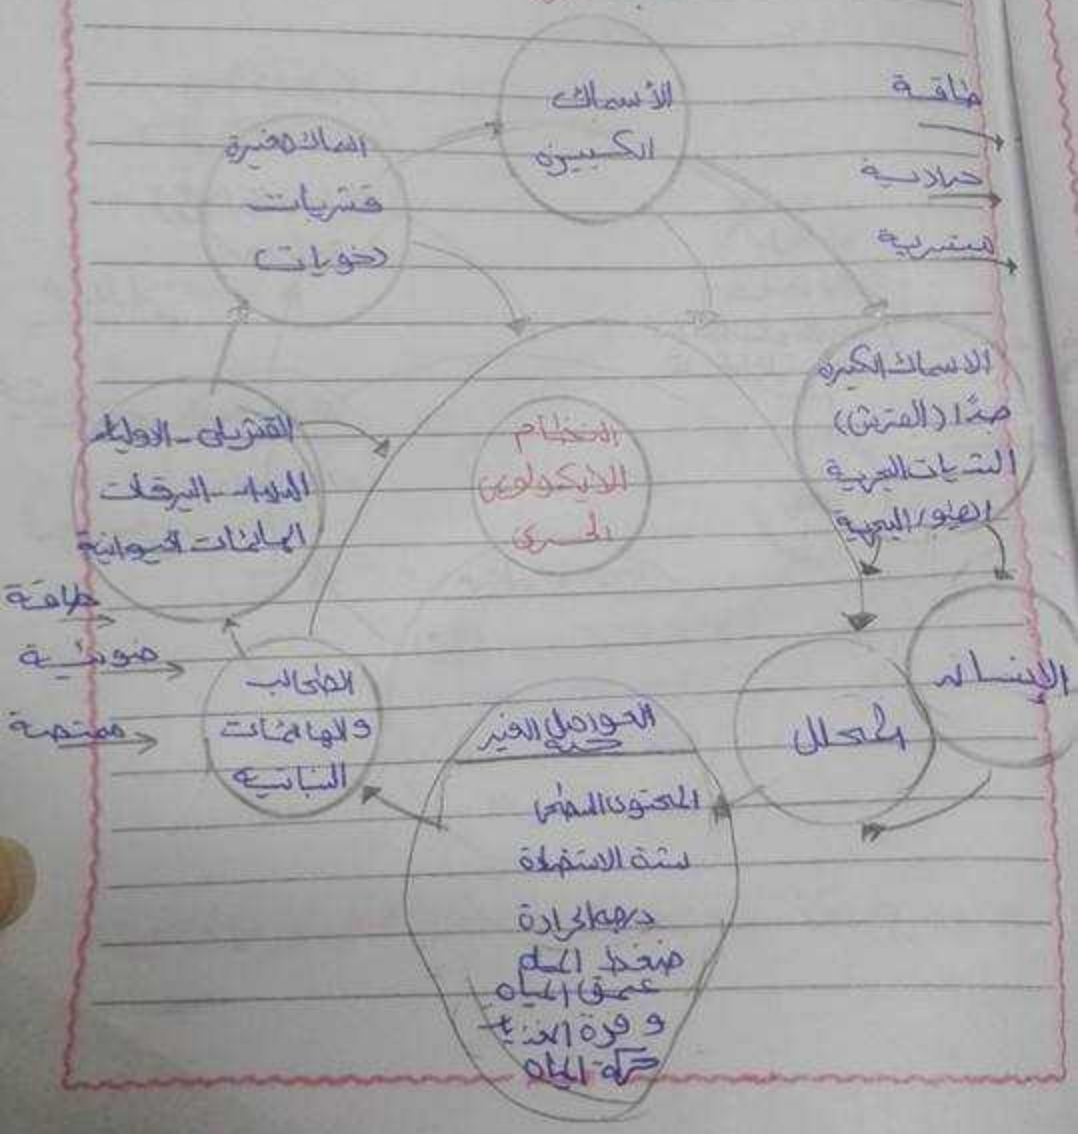 الأسماك
الكبيرة
طاقة
حرارية
متسربة
اسماك صغيرة
قشريات
رخويات
الاسماك الكبيرة
جدًا (القرش)
الثديات البحرية
الطيور البحرية
النظام
الايكولوجى
البحرى
القشريات - الاوليات
الديدان - اليرقات
الهائمات الحيوانية
طاقة
ضوئية
ممتصة
الطحالب
والهائمات
النباتية
العوامل الغير
حية
المحلل
الإنسان
المحتوى الملحى
شدة الاستضاءة
درجه الحرارة
ضغط الماء
عمق المياه
وفرة الغذاء
حركة المياه